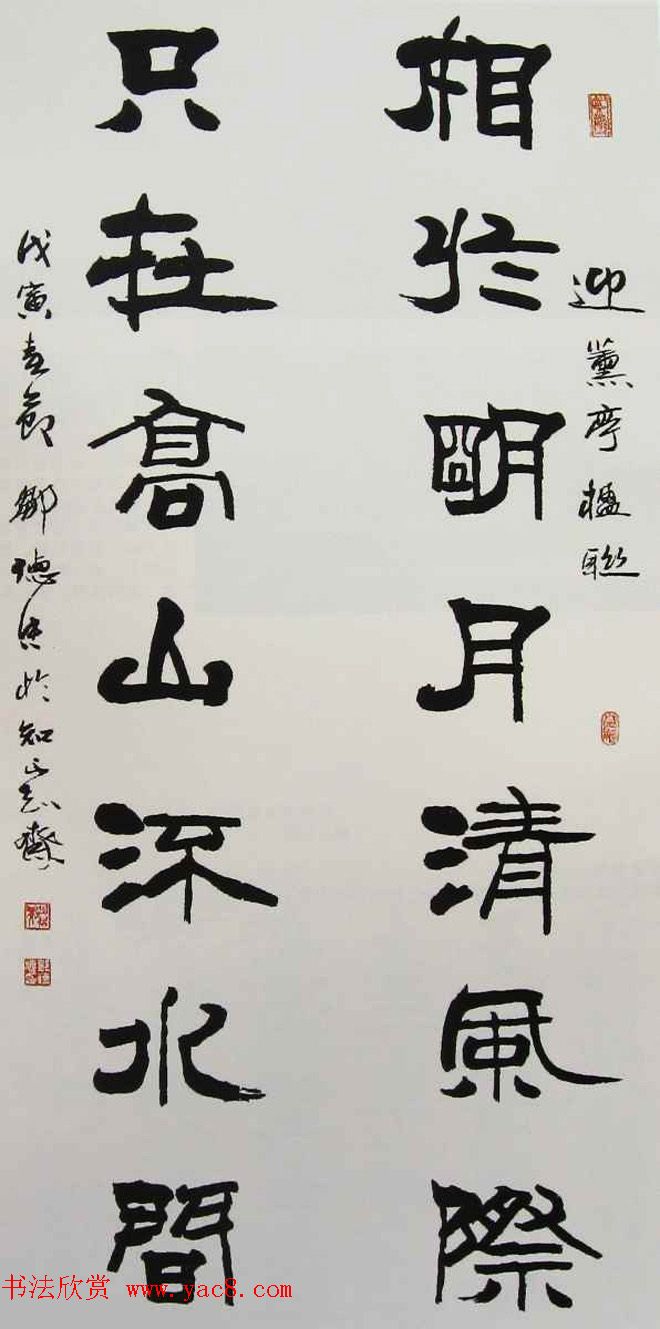 迎薰亭楹聯
相於明月清風際
只在高山流水間
戊寅春節鄒德忠於知齋
书法欣赏 www.yac8.com